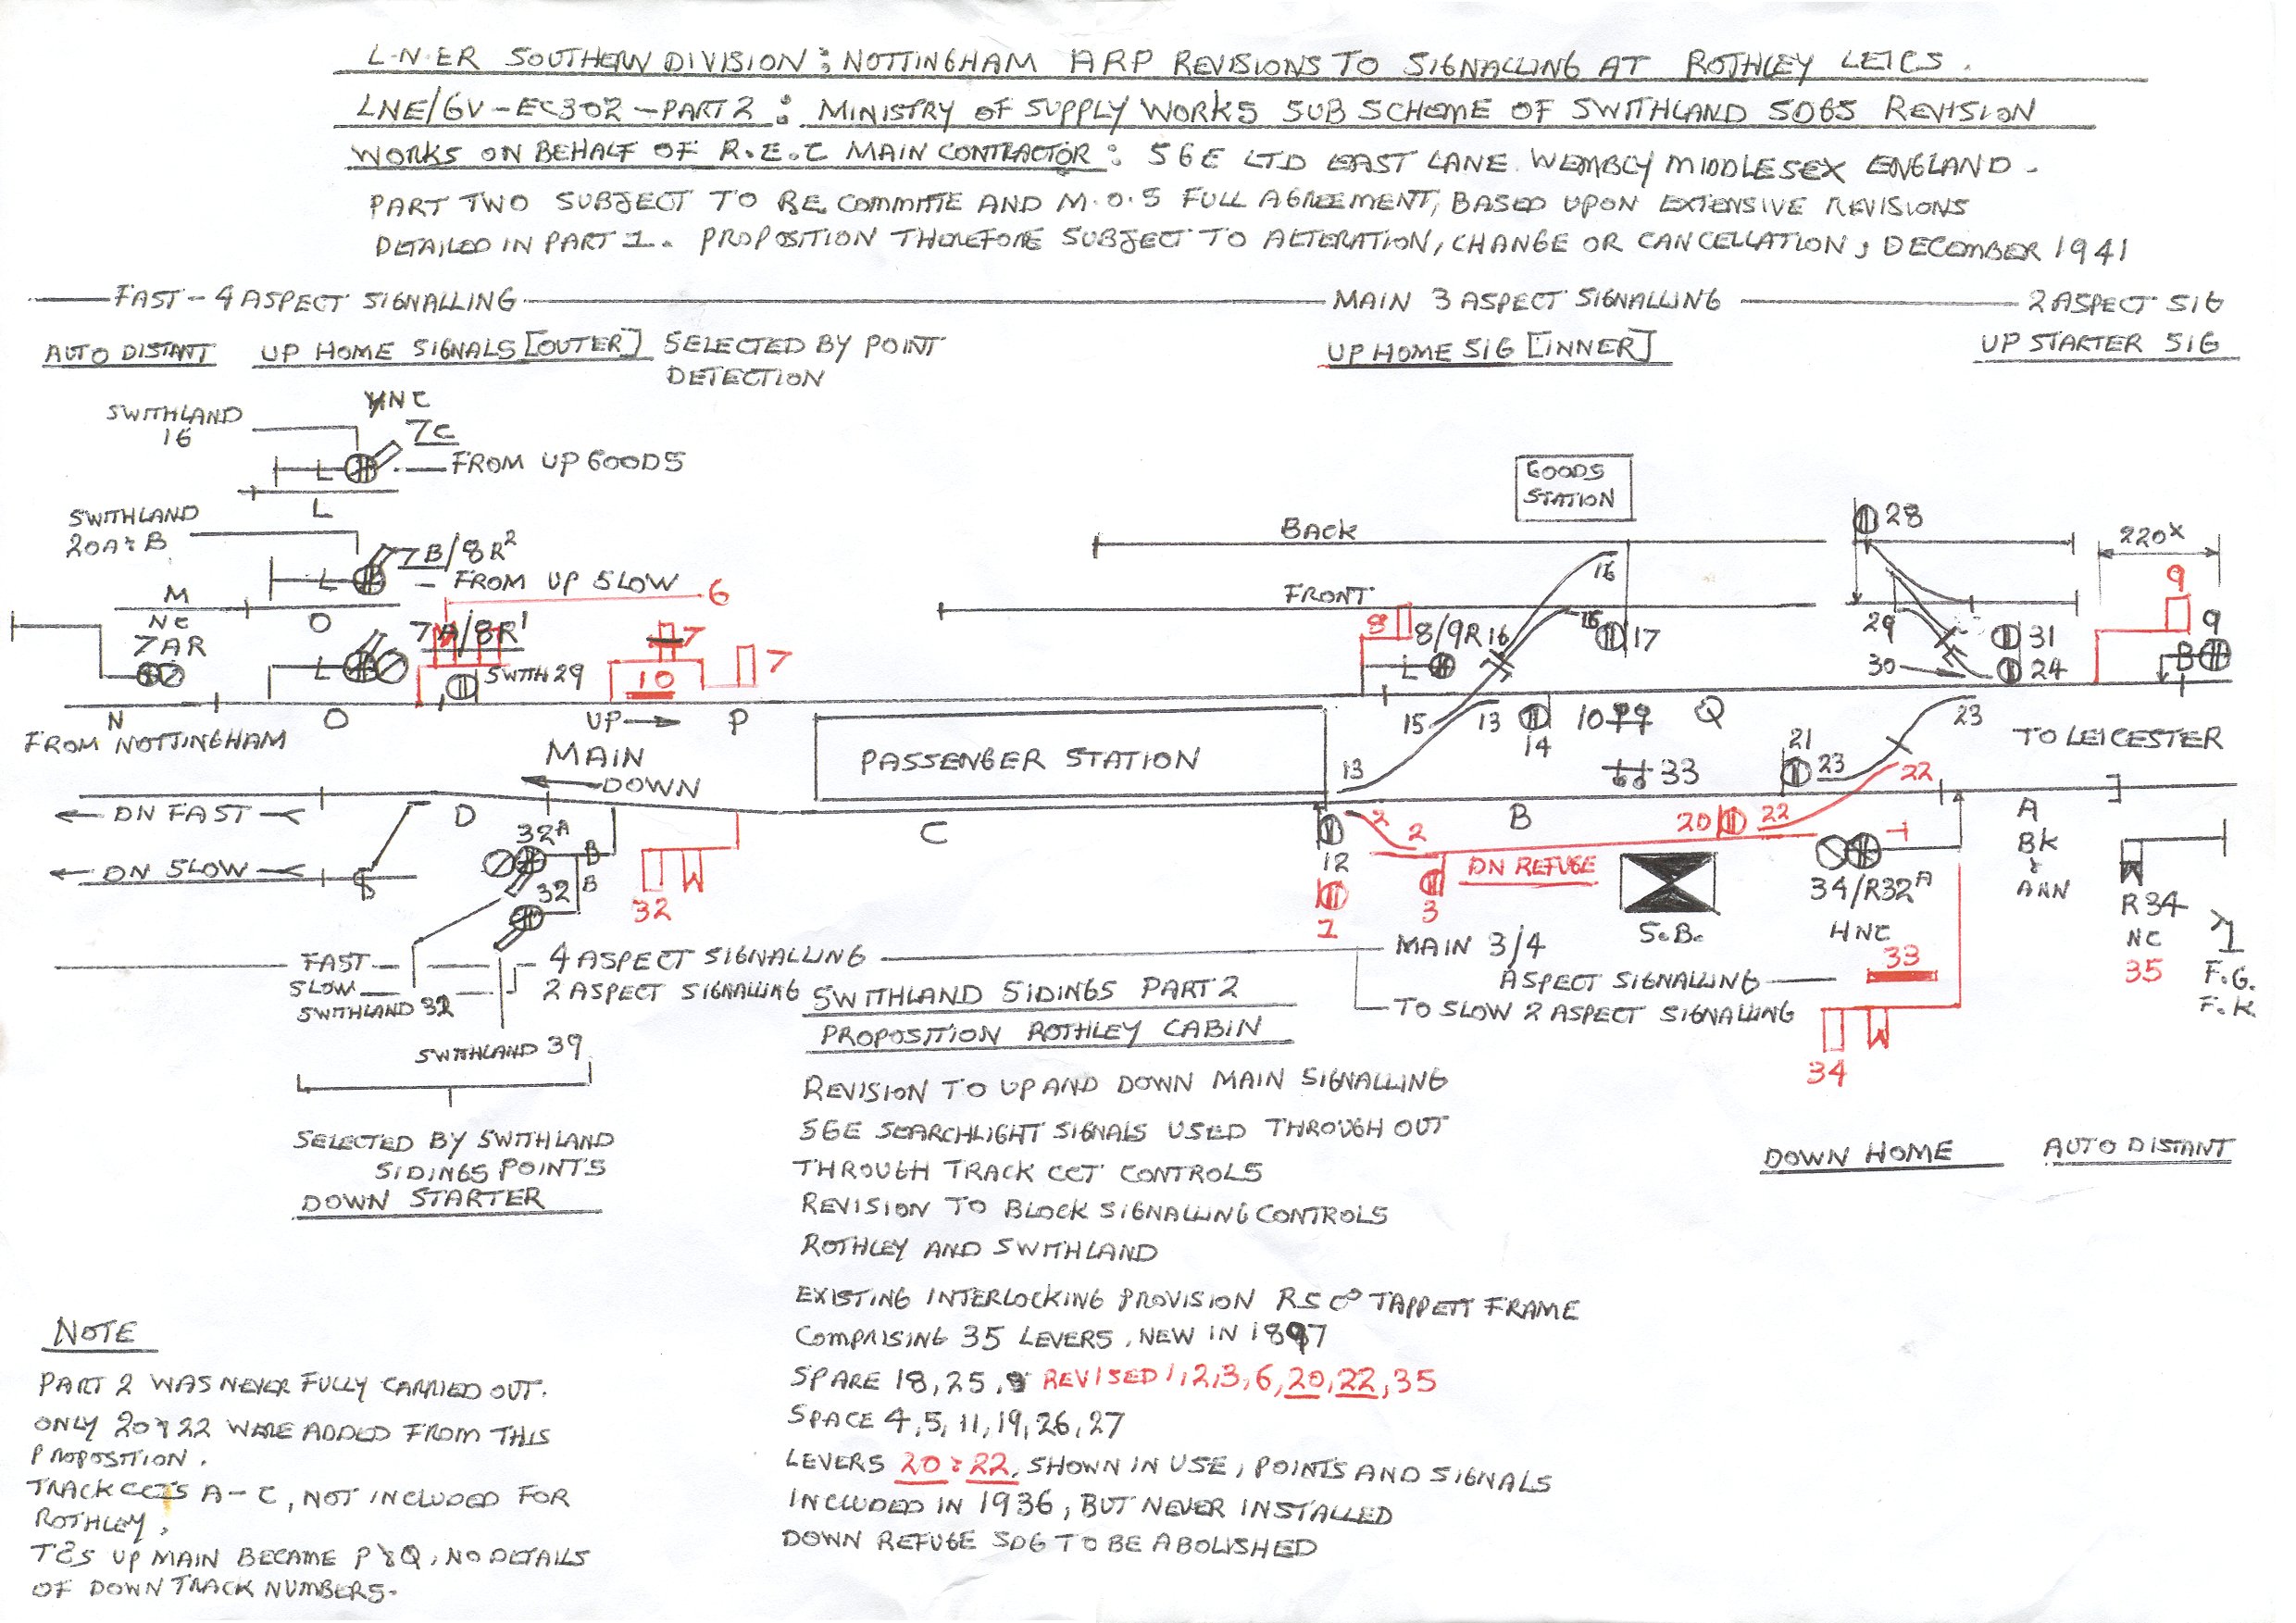 L·N·ER SOUTHERN DIVISION : NOTTINGHAM ARP REVISIONS TO SIGNALLING AT ROTHLEY LEICS.
LNE/GV-EC302-PART 2 : MINISTRY OF SUPPLY WORKS SUB SCHEME OF SWITHLAND SDGS REVISION
WORKS ON BEHALF OF R.E.C MAIN CONTRACTOR : SGE LTD EAST LANE. WEMBLY MIDDLESEX ENGLAND.
PART TWO SUBJECT TO R.E. COMMITTE AND M.O.S FULL AGREEMENT, BASED UPON EXTENSIVE REVISIONS
DETAILED IN PART 1. PROPOSITION THEREFORE SUBJECT TO ALTERATION, CHANGE OR CANCELLATION, DECEMBER 1941
FAST-4 ASPECT SIGNALLING MAIN 3 ASPECT SIGNALLING 2 ASPECT SIG
AUTO DISTANT UP HOME SIGNALS [OUTER] SELECTED BY POINT UP HOME SIG [INNER] UP STARTER SIG
DETECTION
HNC
SWITHLAND
16
7C
L FROM UP GOODS
L
GOODS
STATION
SWITHLAND
20A&B
7B/8R²
L FROM UP SLOW
BACK
28
220X
M
O
6
FRONT
16
9
NC
7AR
7A/8R¹
L
SWITH 29
7
10
7
8
8/9R
L
16
16
17
29
30
31
24
9
B
N
O
UP
P
15
13
14
10
Q
23
FROM NOTTINGHAM
MAIN
DOWN
PASSENGER STATION
13
33
21
23
22
TO LEICESTER
DN FAST
D
C
2
2
B
20
22
A
BK
&
ANN
DN SLOW
32A
B
B
32
32
12
1
3
DN REFUGE
S.B.
34/R32A
HNC
33
34
R34
NC
35
1
F.G.
F.K.
FAST
SLOW
SWITHLAND 32
4 ASPECT SIGNALLING
2 ASPECT SIGNALLING
MAIN 3/4
ASPECT SIGNALLING
TO SLOW 2 ASPECT SIGNALLING
SWITHLAND 39
SELECTED BY SWITHLAND
SIDINGS POINTS
DOWN STARTER
DOWN HOME AUTO DISTANT
SWITHLAND SIDINGS PART 2
PROPOSITION ROTHLEY CABIN
REVISION TO UP AND DOWN MAIN SIGNALLING
SGE SEARCHLIGHT SIGNALS USED THROUGH OUT
THROUGH TRACK CCT CONTROLS
REVISION TO BLOCK SIGNALLING CONTROLS
ROTHLEY AND SWITHLAND
EXISTING INTERLOCKING PROVISION RSCº TAPPETT FRAME
COMPRISING 35 LEVERS, NEW IN 1897
SPARE 18, 25, REVISED 1, 2, 3, 6, 20, 22, 35
SPACE 4, 5, 11, 19, 26, 27
LEVERS 20 & 22, SHOWN IN USE, POINTS AND SIGNALS
INCLUDED IN 1936, BUT NEVER INSTALLED
DOWN REFUGE SDG TO BE ABOLISHED
NOTE
PART 2 WAS NEVER FULLY CARRIED OUT.
ONLY 20 & 22 WERE ADDED FROM THIS
PROPOSITION.
TRACK CCTS A-C, NOT INCLUDED FOR
ROTHLEY,
TCS UP MAIN BECAME P & Q, NO DETAILS
OF DOWN TRACK NUMBERS.